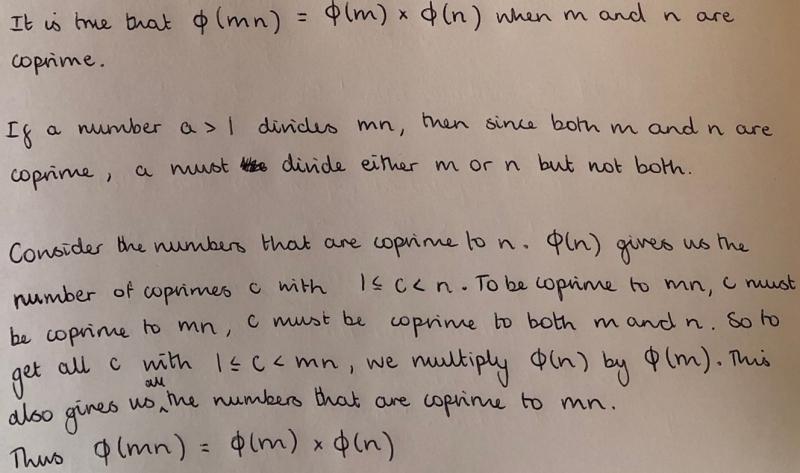 It is true that ϕ(mn) = ϕ(m) × ϕ(n) when m and n are
coprime.
If a number a > 1 divides mn, then since both m and n are
coprime, a must divide either m or n but not both.
Consider the numbers that are coprime to n. ϕ(n) gives us the
number of coprimes c with 1 ≤ c < n. To be coprime to mn, c must
be coprime to mn, c must be coprime to both m and n. So to
get all c with 1 ≤ c < mn, we multiply ϕ(n) by ϕ(m). This
also gives us all the numbers that are coprime to mn.
Thus ϕ(mn) = ϕ(m) × ϕ(n)